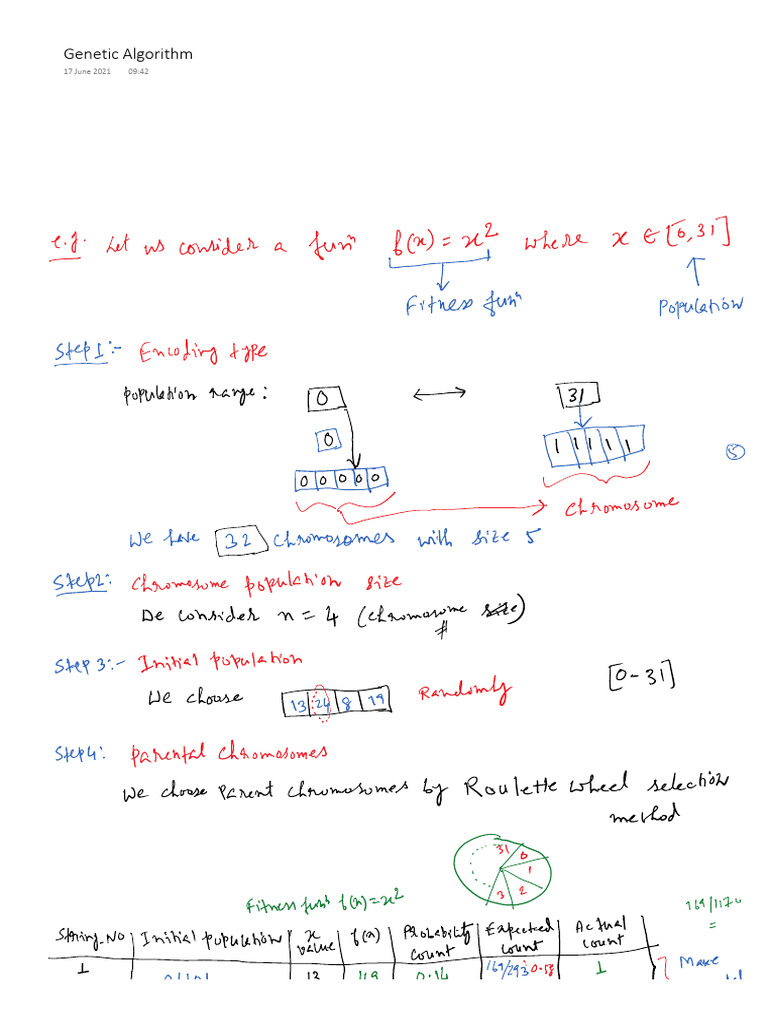 Genetic Algorithm
17 June 2021 09:42
e.g. Let us consider a funⁿ f(x) = x² where x ∈ [0,31]
Fitness funⁿ Population
Step 1:- Encoding type
Population range: 0 ↔ 31
0
1 1 1 1 1
0 0 0 0 0
5
Chromosome
We have 32 chromosomes with size 5
Step2: Chromosome population size
De consider n = 4 (chromosome size)
#
Step 3:- Initial population
[0-31]
We choose 13 24 8 19 Randomly
Step4: Parental chromosomes
We choose Parent chromosomes by Roulette wheel selection
method
31 0 1 2 3
Fitness funⁿ f(x) = x²
169/1170
=
String_No Initial population x value f(x) Probability count Expected count Actual count
1 01101 13 169 0.14 169/293 0.58 1
Make